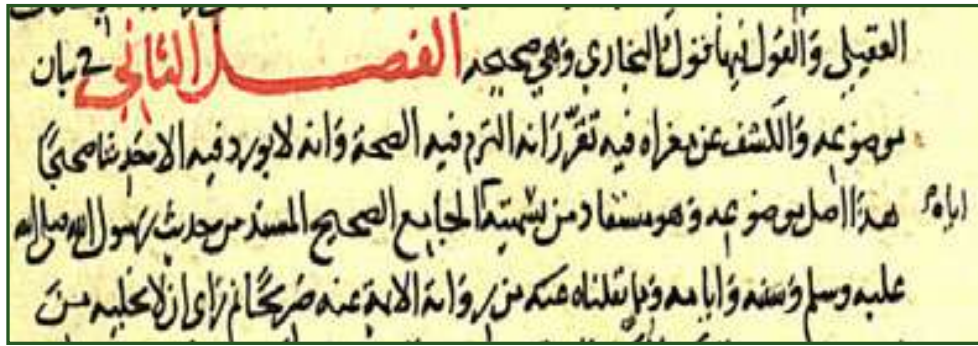 العقيلي والقول فيها قول البخاري وهي صحيحه الفصل الثاني في بيان
موضوعه والكشف عن مغزاه فيه تقرر انه التزم فيه الصحة وانه لا يورد فيه الا حديثا صحيحا
هذا اصل موضوعه وهو مستفاد من تسميته اياه الجامع الصحيح المسند من حديث رسول الله صلى الله
عليه وسلم وسننه وايامه ومما نقلناه عنه من رواية الايمة عنه صريحا ثم راى ان لا يخليه من